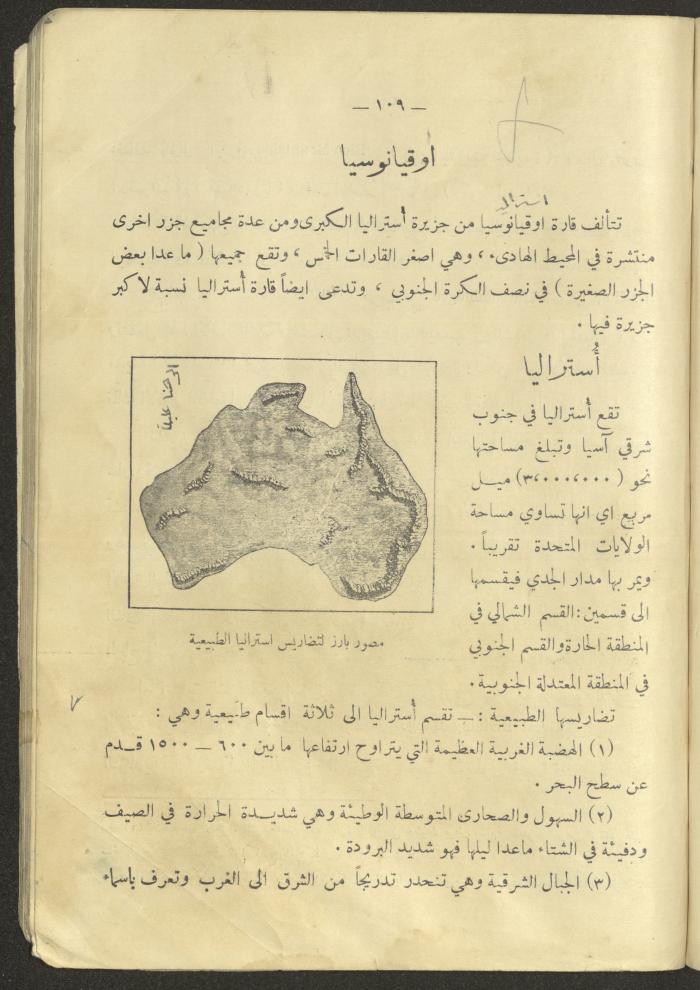 — ١٠٩ —
اوقيانوسيا
تتألف قارة اوقيانوسيا من جزيرة أستراليا الكبرى ومن عدة مجاميع جزر اخرى
منتشرة في المحيط الهادىء، وهي اصغر القارات الخمس ، وتقع جميعها ( ما عدا بعض
الجزر الصغيرة ) في نصف الكرة الجنوبي ، وتدعى ايضاً قارة أستراليا نسبة لاكبر
جزيرة فيها .
أُستراليا
تقع أستراليا في جنوب
شرقي آسيا وتبلغ مساحتها
نحو ( ٣،٠٠٠،٠٠٠) ميل
مربع اي انها تساوي مساحة
الولايات المتحدة تقريباً .
ويمر بها مدار الجدي فيقسمها
الى قسمين : القسم الشمالي في
المنطقة الحارة والقسم الجنوبي
في المنطقة المعتدلة الجنوبية .
مصور بارز لتضاريس استراليا الطبيعية
تضاريسها الطبيعية : — تقسم أستراليا الى ثلاثة اقسام طبيعية وهي :
(١) الهضبة الغربية العظيمة التي يتراوح ارتفاعها ما بين ٦٠٠ — ١٥٠٠ قدم
عن سطح البحر .
(٢) السهول والصحارى المتوسطة الوطيئة وهي شديدة الحرارة في الصيف
ودفيئة في الشتاء ماعدا ليلها فهو شديد البرودة .
(٣) الجبال الشرقية وهي تنحدر تدريجاً من الشرق الى الغرب وتعرف باسماء